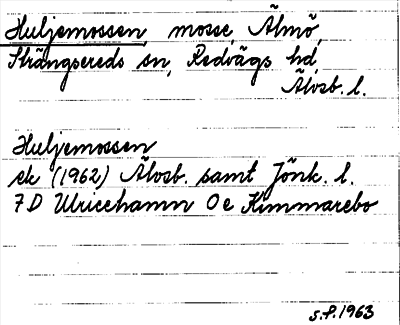 Huljemossen, mosse, Älmö,
Strängsereds sn, Redvägs hd,
Älvsb. l.
Huljemossen
ek (1962) Älvsb. samt Jönk. l.
7D Ulricehamn Oe Kimmarebo
s.f. 1963